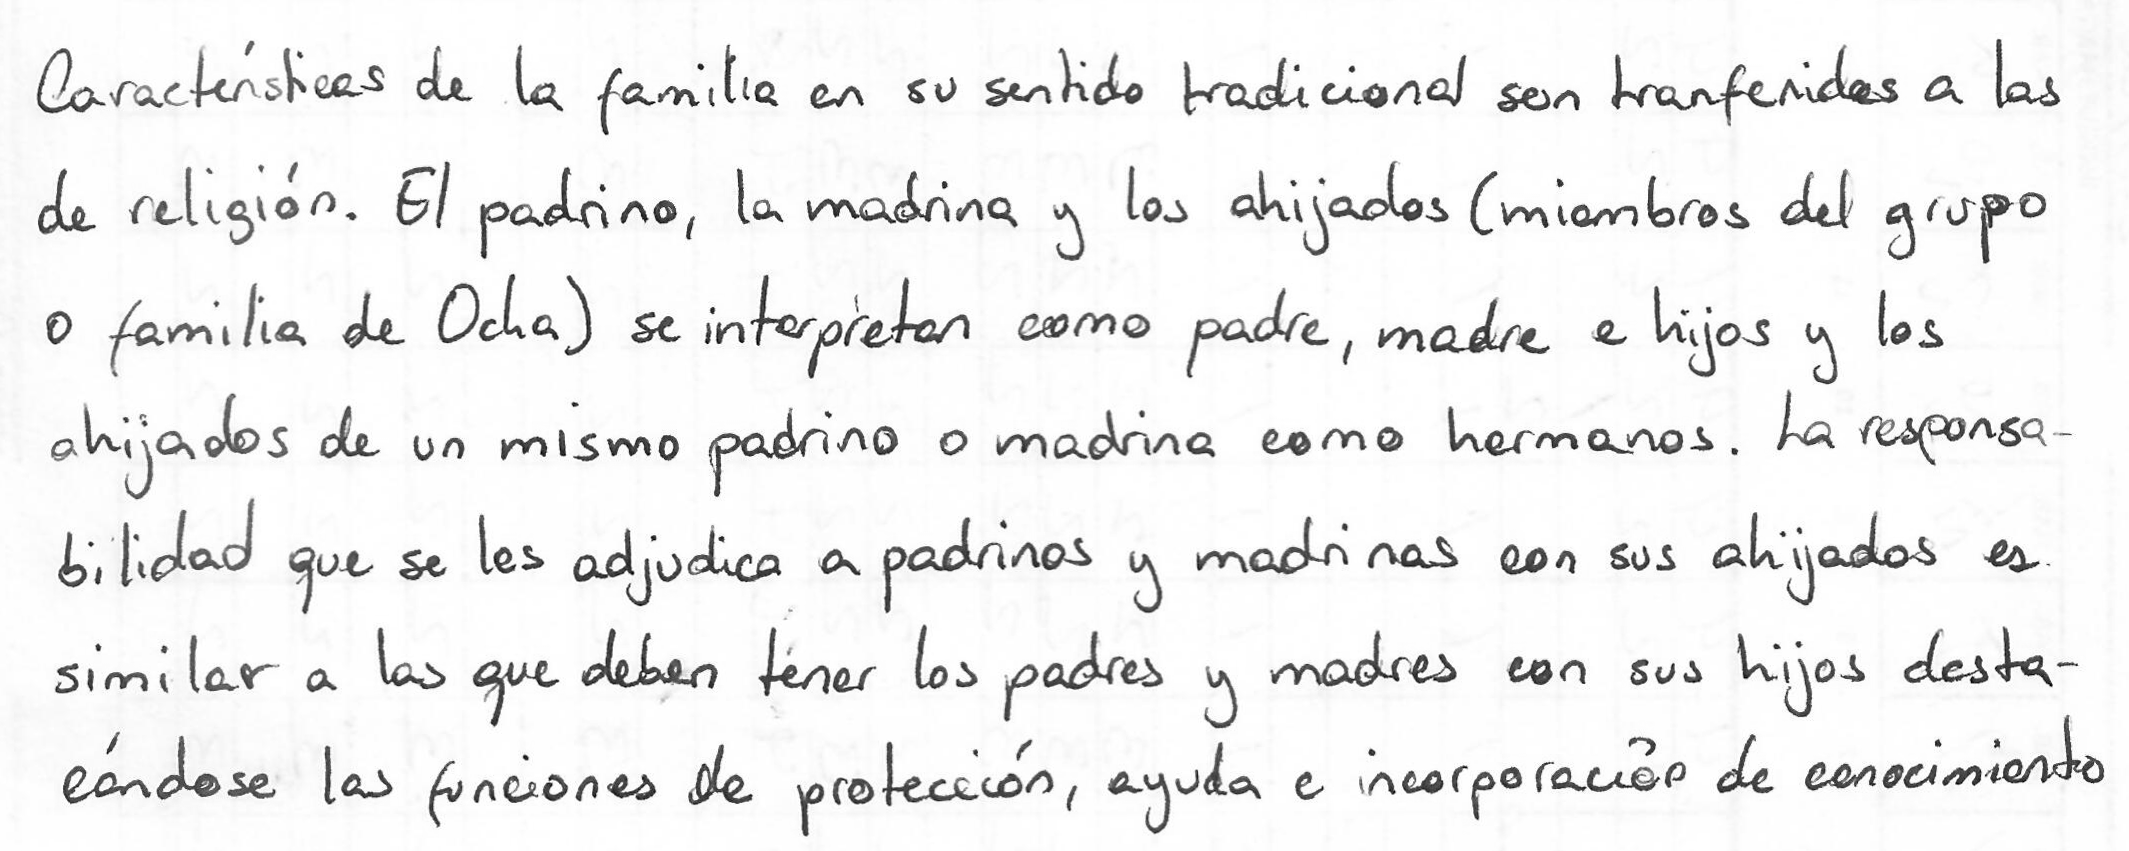 Características de la familia en su sentido tradicional son tranferidas a las
de religión. El padrino, la madrina y los ahijados (miembros del grupo
o familia de Ocha) se interpretan como padre, madre e hijos y los
ahijados de un mismo padrino o madrina como hermanos. La responsa-
bilidad que se les adjudica a padrinos y madrinas con sus ahijados es
similar a las que deben tener los padres y madres con sus hijos desta-
cándose las funciones de protección, ayuda e incorporación de conocimiento